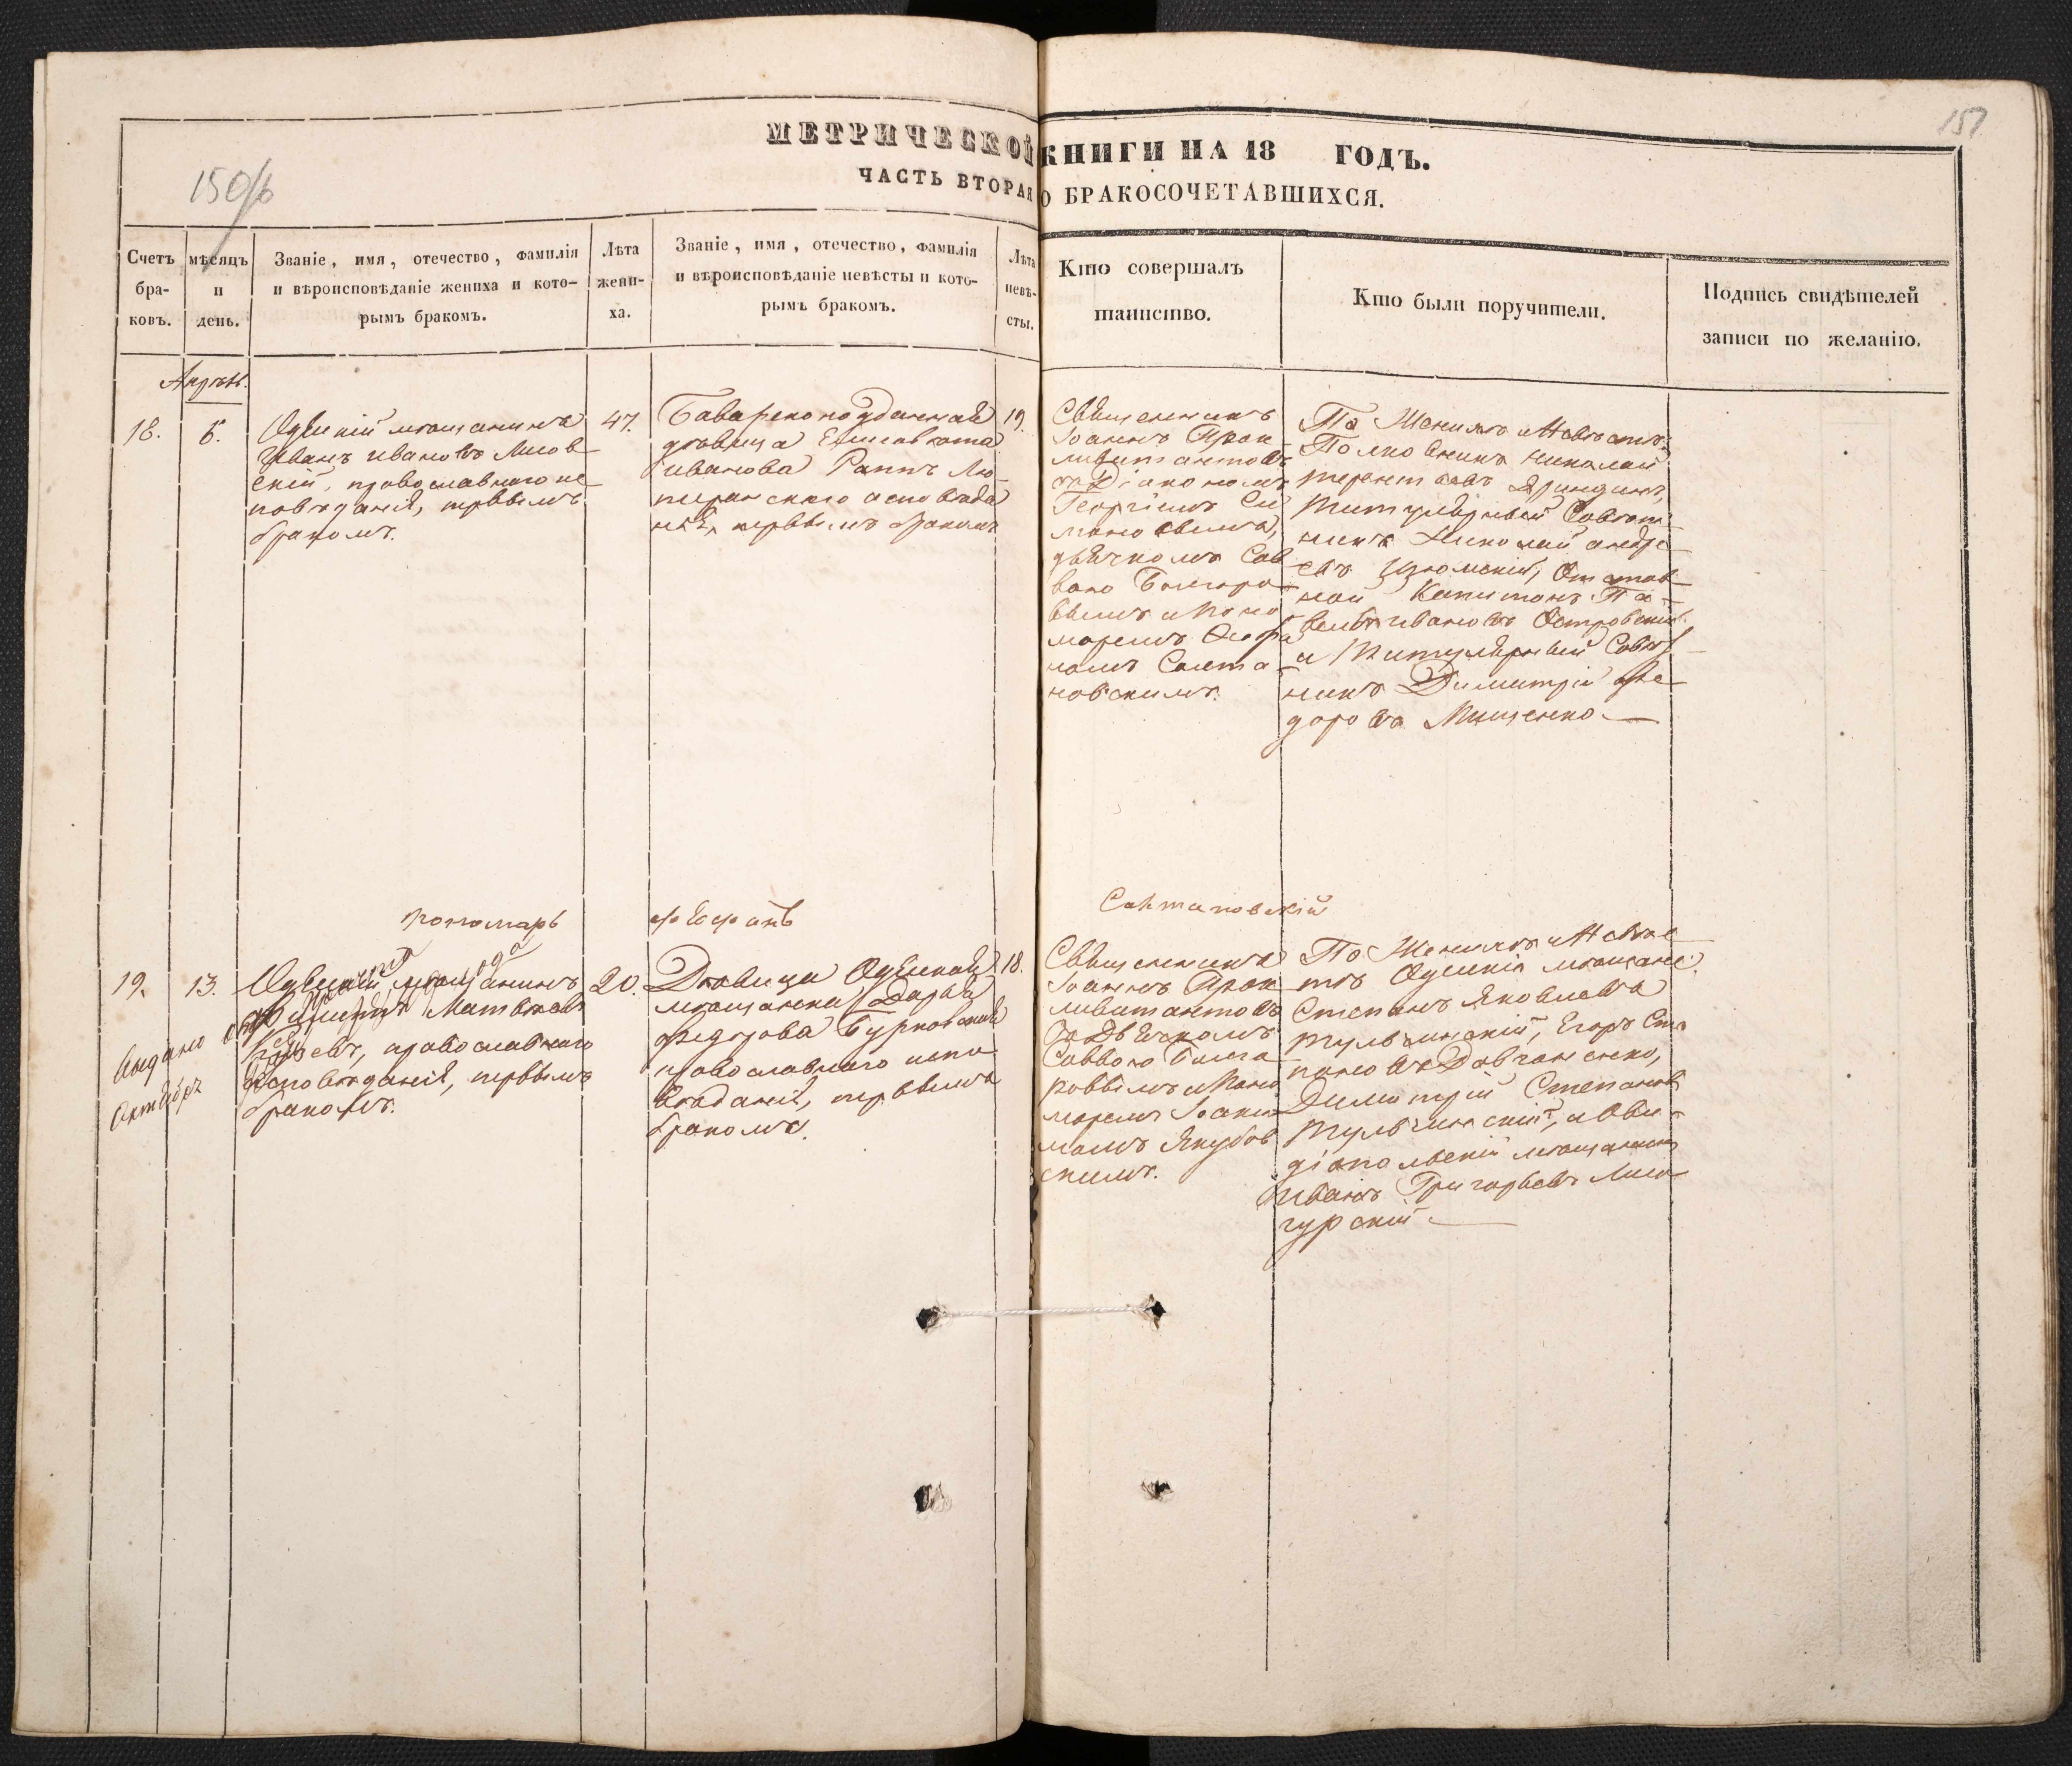 МЕТРИЧЕСКОЙ КНИГИ НА 18 ГОДЪ.
ЧАСТЬ ВТОРАЯ О БРАКОСОЧЕТАВШИХСЯ.
150об
151
Счетъ
бра-
ковъ.
мѣсяцъ
и
день.
Званіе, имя, отечество, фамилія
и вѣроисповѣданіе жениха и кото-
рымъ бракомъ.
Лѣта
жени-
ха.
Званіе, имя, отечество, фамилія
и вѣроисповѣданіе невѣсты и кото-
рымъ бракомъ.
Лѣта
невѣ-
сты.
Кто совершалъ
таинство.
Кто были поручители.
Подпись свидѣтелей
записи по желанію.
Апрѣль.
18.
Одескій мѣщанинъ
Иванъ Ивановъ Лисов
скій, православнаго ис
повѣданія, первымъ
бракомъ.
47.
Баварско подданная
дѣвица Елисавета
Иванова Раппъ Лю
теранскаго исповѣда
нія, первымъ бракомъ
19.
Священникъ
Іоаннъ
съ Діакономъ
Георгіемъ Си
мановымъ,
дьячкомъ Сав
вою
и Поно
маремъ Феофа
номъ Салта
новскимъ.
По Женихѣ и Невѣстѣ:
Полковникъ Николай
Терентьевъ
Титулярный Совѣт
никъ Николай Андре
евъ Изюмскій, Отстав
ной Капитанъ Па
велъ Ивановъ Островскій
и Титулярный Совѣт
никъ Димитрій Фе
доровъ Мищенко
пономарь Феофанъ Салтановскій
19.
13.
Одескій мѣщанинъ
Матвѣевъ
православнаго
исповѣданія, первымъ
бракомъ.
20.
Дѣвица Одеская
мѣщанка Дарья
Федорова Бурковская
православнаго испо
вѣданія, первымъ
бракомъ.
18.
Священникъ
Іоаннъ
съ Дьячкомъ
Саввою
и Поно
маремъ Іоаки
момъ Якубов
скимъ.
По Женихѣ и Невѣс
тѣ Одескіи мѣщане:
Степанъ Яковлевъ
Тульчинскій, Егоръ Сте
пановъ Довганенко,
Димитрій Степановъ
Тульчинскій, и Ови
діопольскій мѣщанинъ
Иванъ Григорьевъ Лисо
гурскій
Выдано
Октября